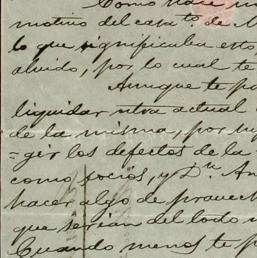 Como hace
motivo del casa.to de M
lo que significaba esto
olvido, por lo cual te
Aunque te pa
liquidar ntra actual
de la misma, por
=gir los defectos de la
como socios, y Dn An
hacer algo de provech
que serían del todo
Cuando menos te p